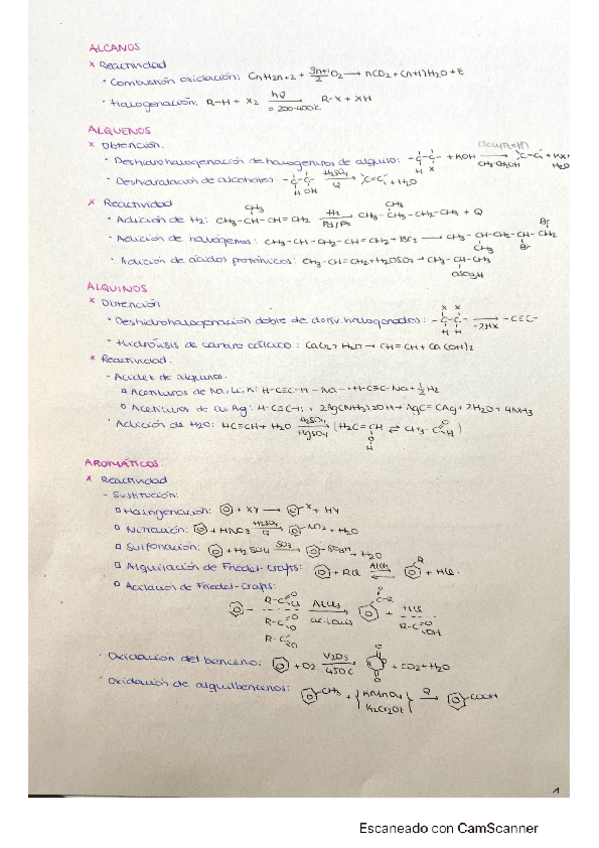 ALCANOS
× Reactividad
· Combustión oxidación: CnH2n+2 + 3n+1/2 O2 → nCO2 + (n+1)H2O + E
· Halogenación: R-H + X2 hν 200-400ºC → R-X + XH
ALQUENOS
× Obtención.
· Deshidrohalogenación de halogenuros de alquilo: -C-C- H X + KOH CH3-CH2OH → C=C + KX + H2O
· Deshidratación de alcoholes: -C-C- H OH H2SO4 Q → C=C + H2O
× Reactividad
· Adición de H2: CH3-CH-CH=CH2 CH3 H2 Pd/Pt → CH3-CH-CH2-CH3 CH3 + Q
· Adición de halógenos: CH3-CH-CH2-CH=CH2 + Br2 → CH3-CH-CH2-CH-CH2 CH3 Br Br
· Adición de ácidos protónicos: CH3-CH=CH2 + H2SO4 → CH3-CH-CH3 OSO3H
ALQUINOS
× Obtención
· Deshidrohalogenación doble de deriv. halogenados: X X -C-C- H H -2HX → -C≡C-
· Hidrólisis de carburo cálcico: CaC2 + H2O → CH≡CH + Ca(OH)2
× Reactividad.
- Acidez de alquinos.
Acetiluros de Na, Li, K: H-C≡C-H + Na → H-C≡C-Na + ½ H2
Acetiluros de Cu Ag: H-C≡C-H + 2Ag(NH3)2OH → AgC≡CAg + 2H2O + 4NH3
· Adición de H2O: HC≡CH + H2O H2SO4 HgSO4 → (H2C=CH O H ⇌ CH3-C O H)
AROMÁTICOS.
× Reactividad
- Sustitución:
Halogenación: + XY → X + HY
Nitración: + HNO3 H2SO4 → NO2 + H2O
Sulfonación: + H2SO4 SO3 → SO3H + H2O
Alquilación de Friedel-Crafts: + RCl AlCl3 ⇌ R + HCl.
Acilación de Friedel-Crafts:
R-C O Cl AlCl3 → O C-R + HCl
R-C O R-C O OH
· Oxidación del benceno: + O2 V2O5 450C → + CO2 + H2O
· Oxidación de alquilbencenos: CH3 + {KMnO4 K2Cr2O7} Q → COOH
1
Escaneado con CamScanner